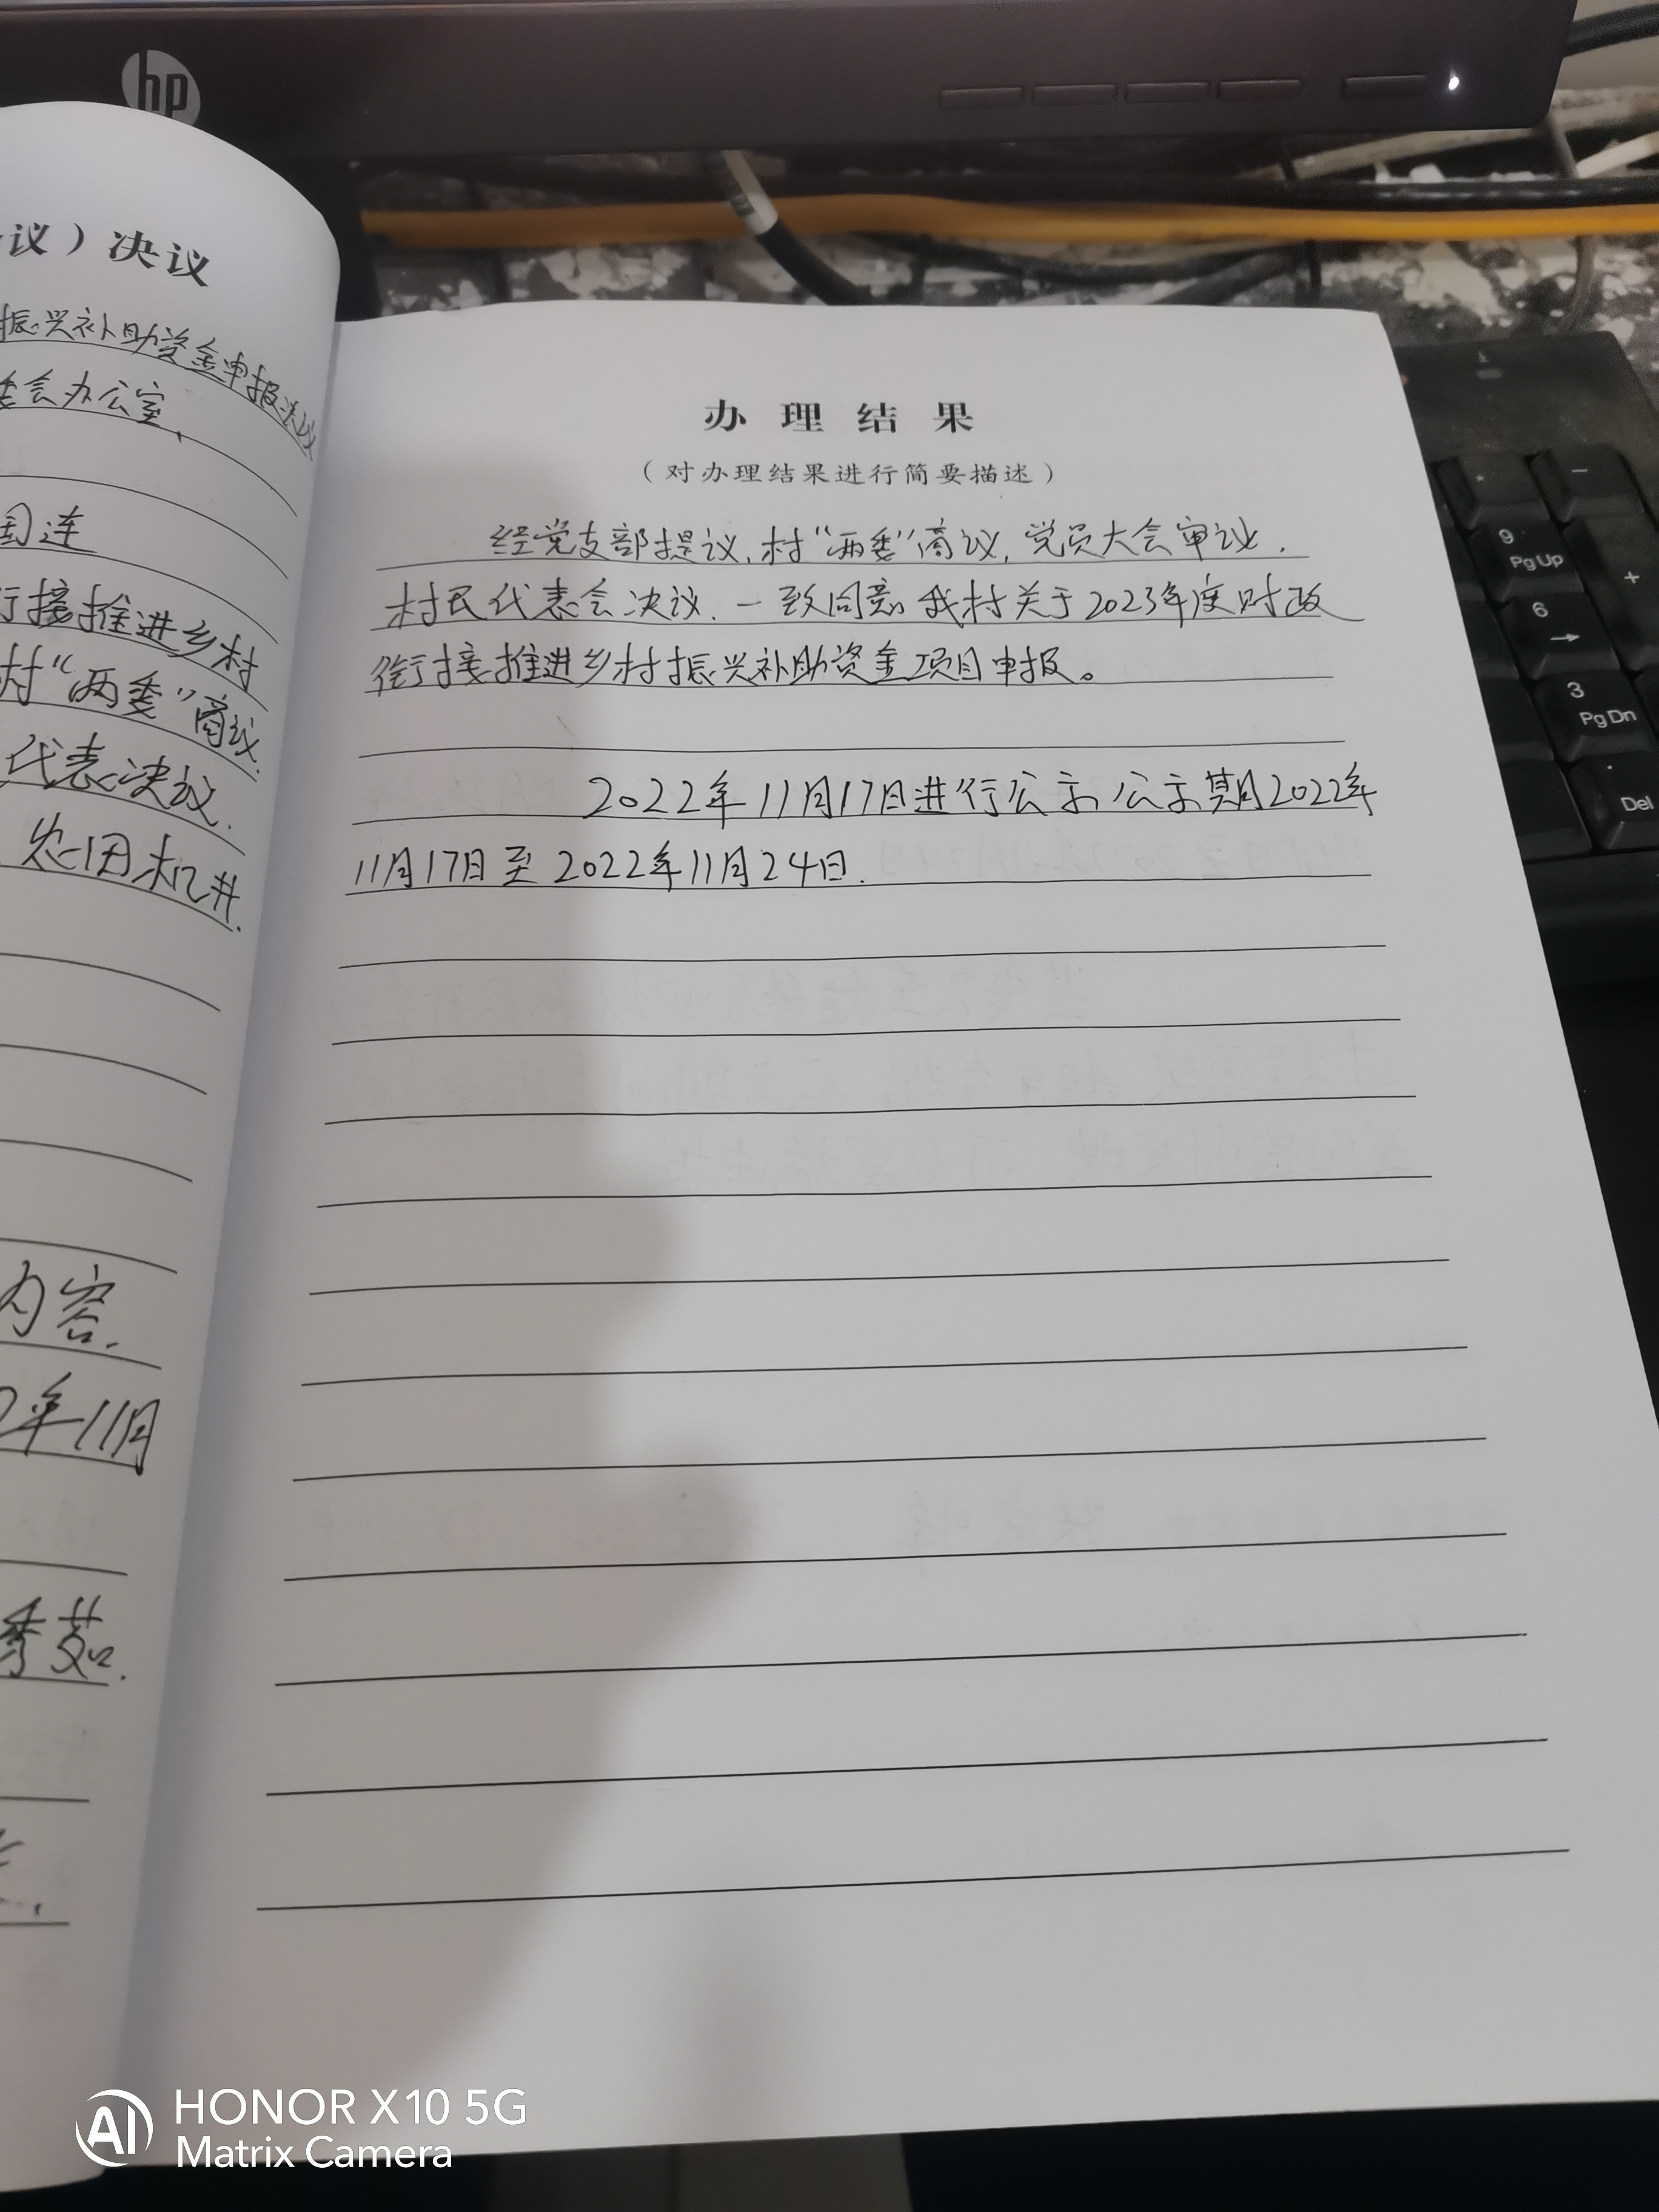 hp
议）决议
振兴补助资金申报决议
委会办公室、
国连
行接推进乡村
村“两委”商议.
代表决议.
农田机井.
内容.
2年11月
秀茹.
办理结果
（对办理结果进行简要描述）
经党支部提议,村“两委”商议,党员大会审议.
村民代表会决议.一致同意我村关于2023年度财政
衔接推进乡村振兴补助资金项目申报。
2022年11月17日进行公示,公示期2022年
11月17日至2022年11月24日.
-
9
PgUp
+
6
→
3
PgDn
.
Del
AI HONOR X10 5G
Matrix Camera